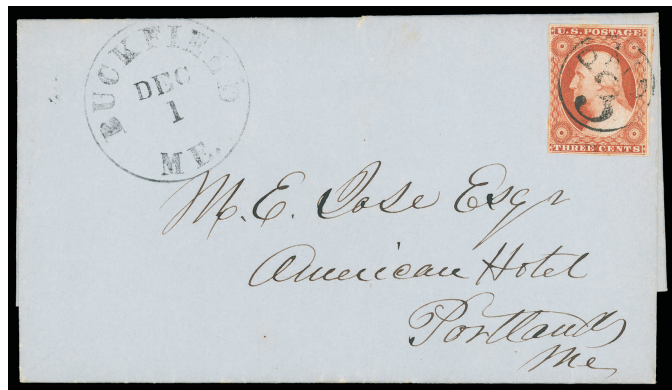 BUCKFIELD
DEC
1
ME.
U.S. POSTAGE
PAID
3
THREE CENTS
M. E. Jose Esqr
American Hotel
Portland
Me